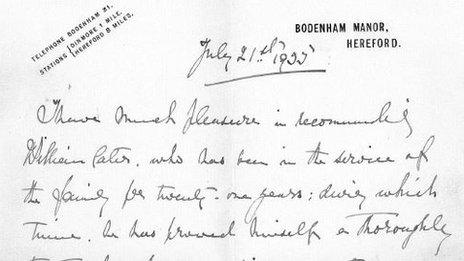 TELEPHONE BODENHAM 31.
STATIONS DINMORE 1 MILE.
HEREFORD 8 MILES.
BODENHAM MANOR,
HEREFORD.
July 21st 1935
I have much pleasure in recommending
William Cater, who has been in the service of
the family for twenty-one years; during which
time, he has proved himself a thoroughly